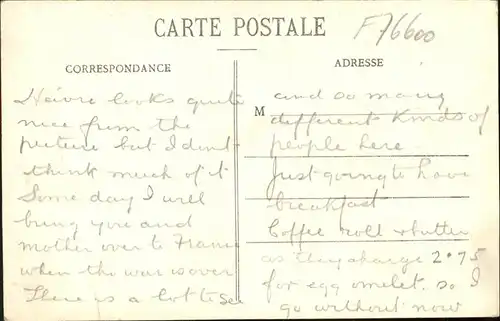 CARTE POSTALE
F76600
CORRESPONDANCE
ADRESSE
Havre looks quite
nice from the
picture but I don't
think much of it
Some day I will
bring you and
mother over to France
when the war is over
There is a lot to see
and so many
M
different kinds of
people here
Just going to have
breakfast
Coffee roll & butter
as they charge 2.75
for egg omelet. so I
go without now